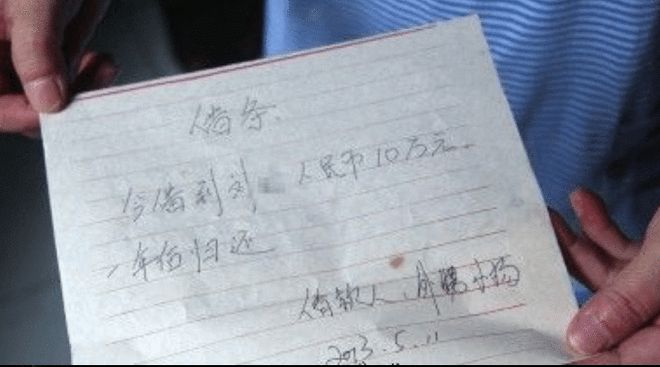 借条.
今借到刘 人民币10万元。
一年 归还
借款人:
2013.5.11